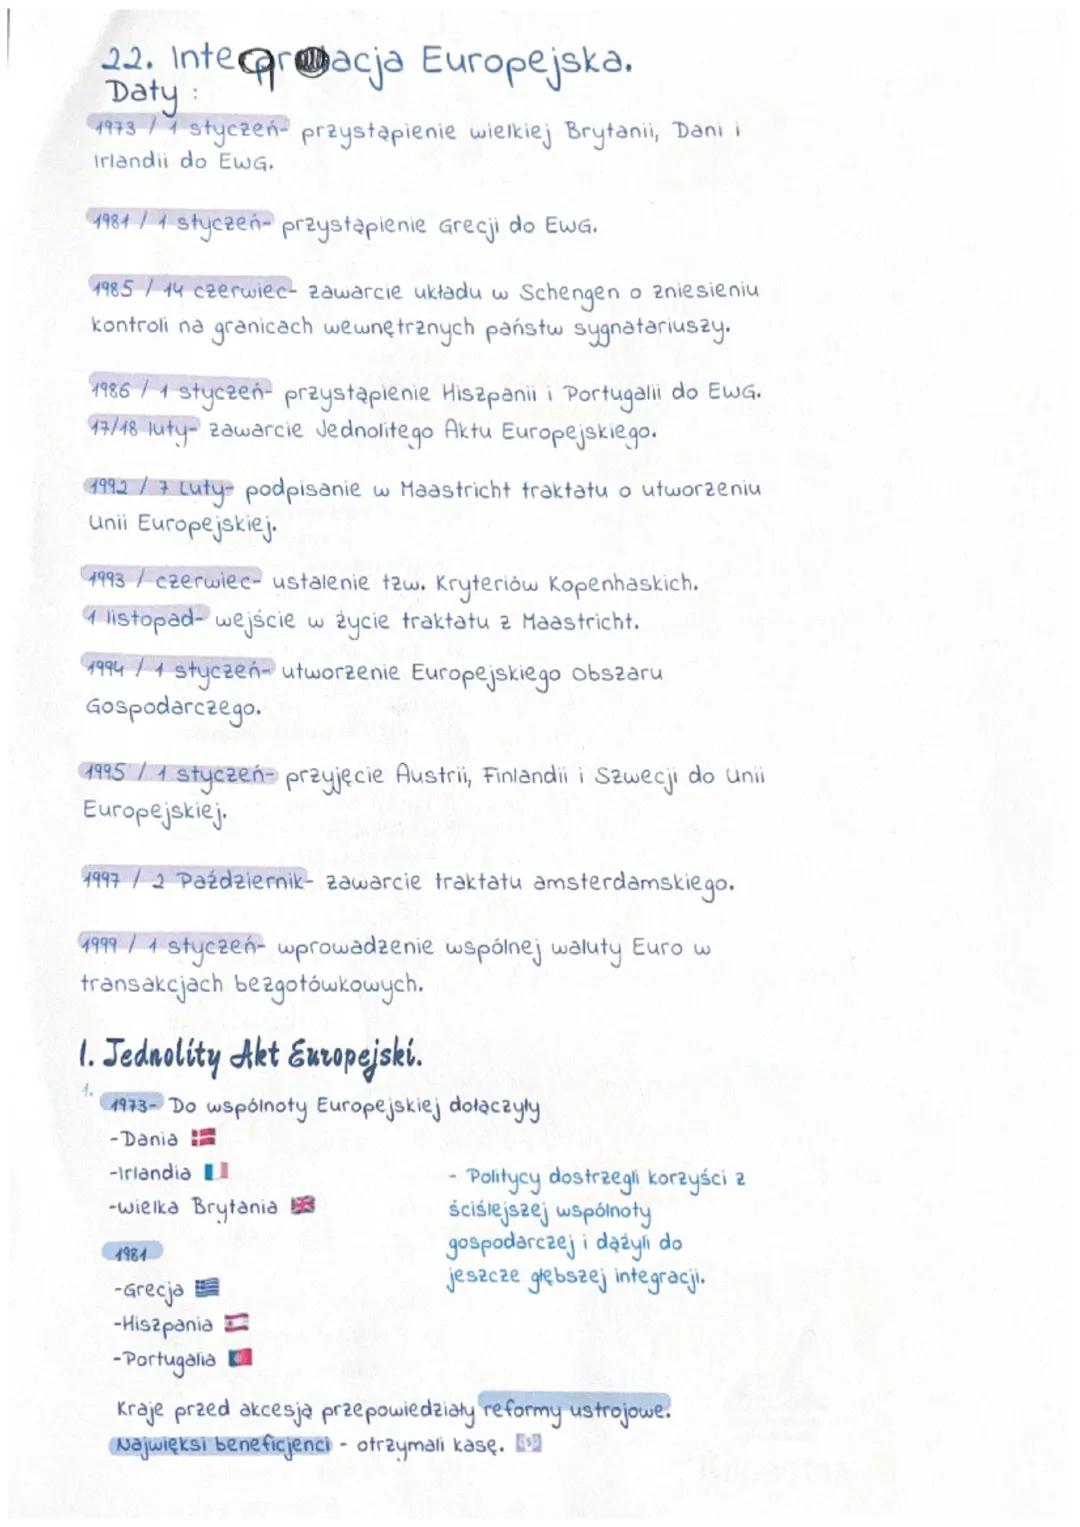 22. Integracja Europejska.
Daty:
1973 / 1 styczeń- przystąpienie wielkiej Brytanii, Dani i
Irlandii do EWG.
1981 / 1 styczeń- przystąpienie Grecji do EWG.
1985 / 14 czerwiec- zawarcie układu w Schengen o zniesieniu
kontroli na granicach wewnętrznych państw sygnatariuszy.
1986 / 1 styczeń- przystąpienie Hiszpanii i Portugalii do EWG.
17/18 luty- zawarcie Jednolitego Aktu Europejskiego.
1992 / 7 Luty- podpisanie w Maastricht traktatu o utworzeniu
Unii Europejskiej.
1993 / czerwiec- ustalenie tzw. Kryteriów Kopenhaskich.
1 listopad- wejście w życie traktatu z Maastricht.
1994 / 1 styczeń- utworzenie Europejskiego Obszaru
Gospodarczego.
1995 / 1 styczeń- przyjęcie Austrii, Finlandii i Szwecji do Unii
Europejskiej.
1997 / 2 Październik- zawarcie traktatu amsterdamskiego.
1999 / 1 styczeń- wprowadzenie wspólnej waluty Euro w
transakcjach bezgotówkowych.
1. Jednolity Akt Europejski.
1.
1973- Do wspólnoty Europejskiej dołączyły
-Dania
-Irlandia
-wielka Brytania
1981
-Grecja
-Hiszpania
-Portugalia
- Politycy dostrzegli korzyści z
ściślejszej wspólnoty
gospodarczej i dążyli do
jeszcze głębszej integracji.
Kraje przed akcesją przepowiedziały reformy ustrojowe.
Najwięksi beneficjenci - otrzymali kasę.